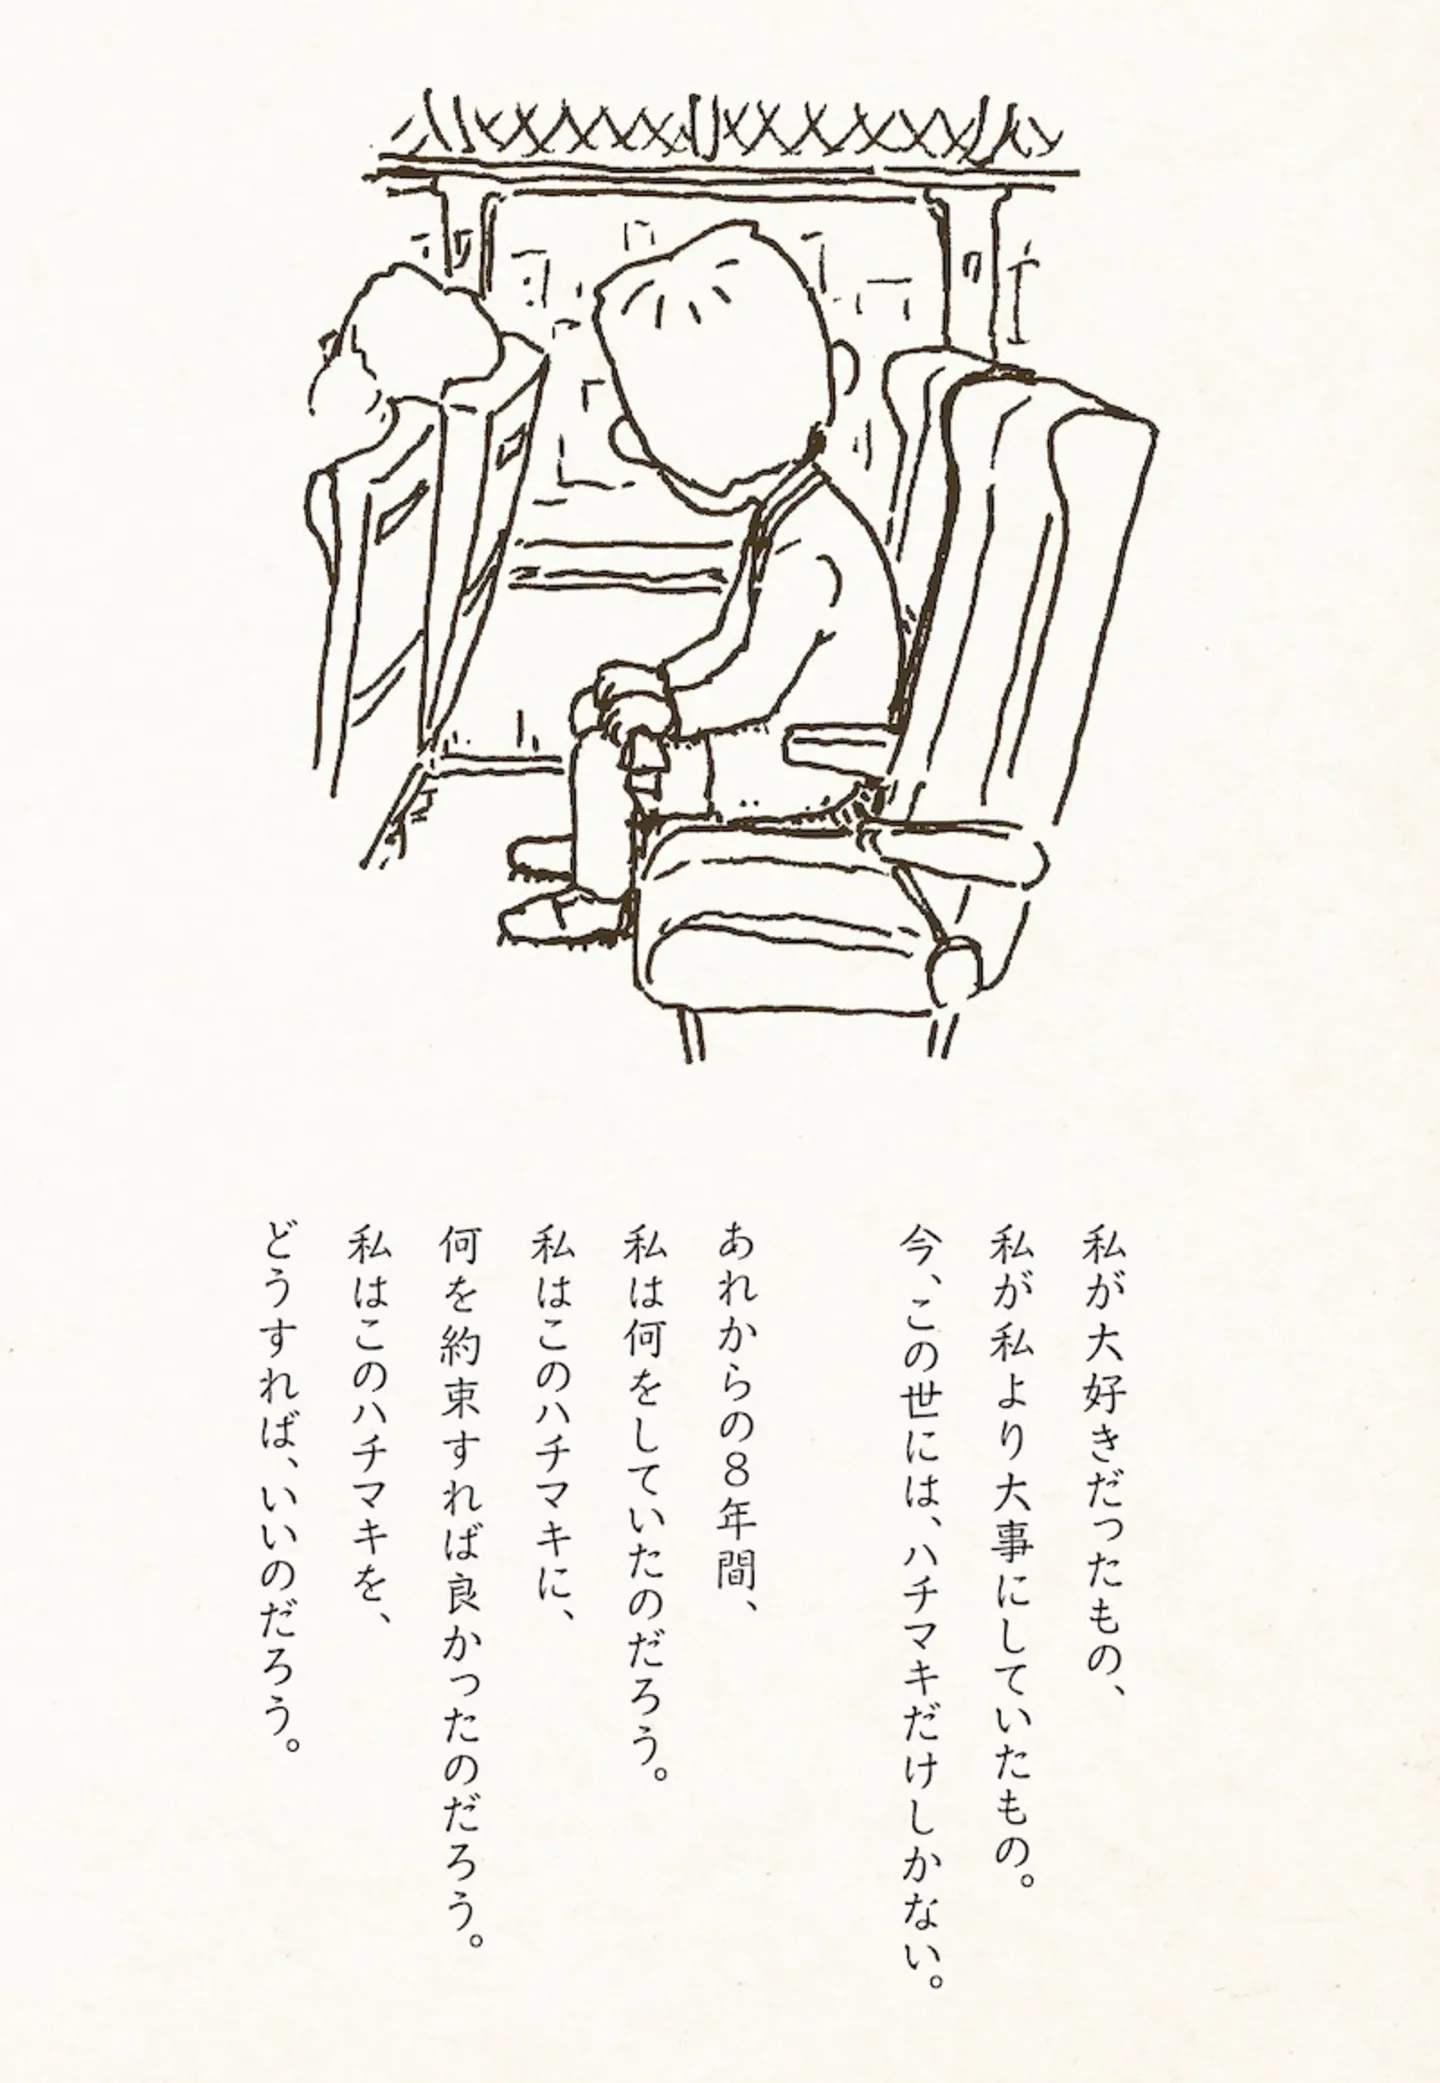 私が大好きだったもの、
私が私より大事にしていたもの。
今、この世には、ハチマキだけしかない。
あれからの8年間、
私は何をしていたのだろう。
私はこのハチマキに、
何を約束すれば良かったのだろう。
私はこのハチマキを、
どうすれば、いいのだろう。